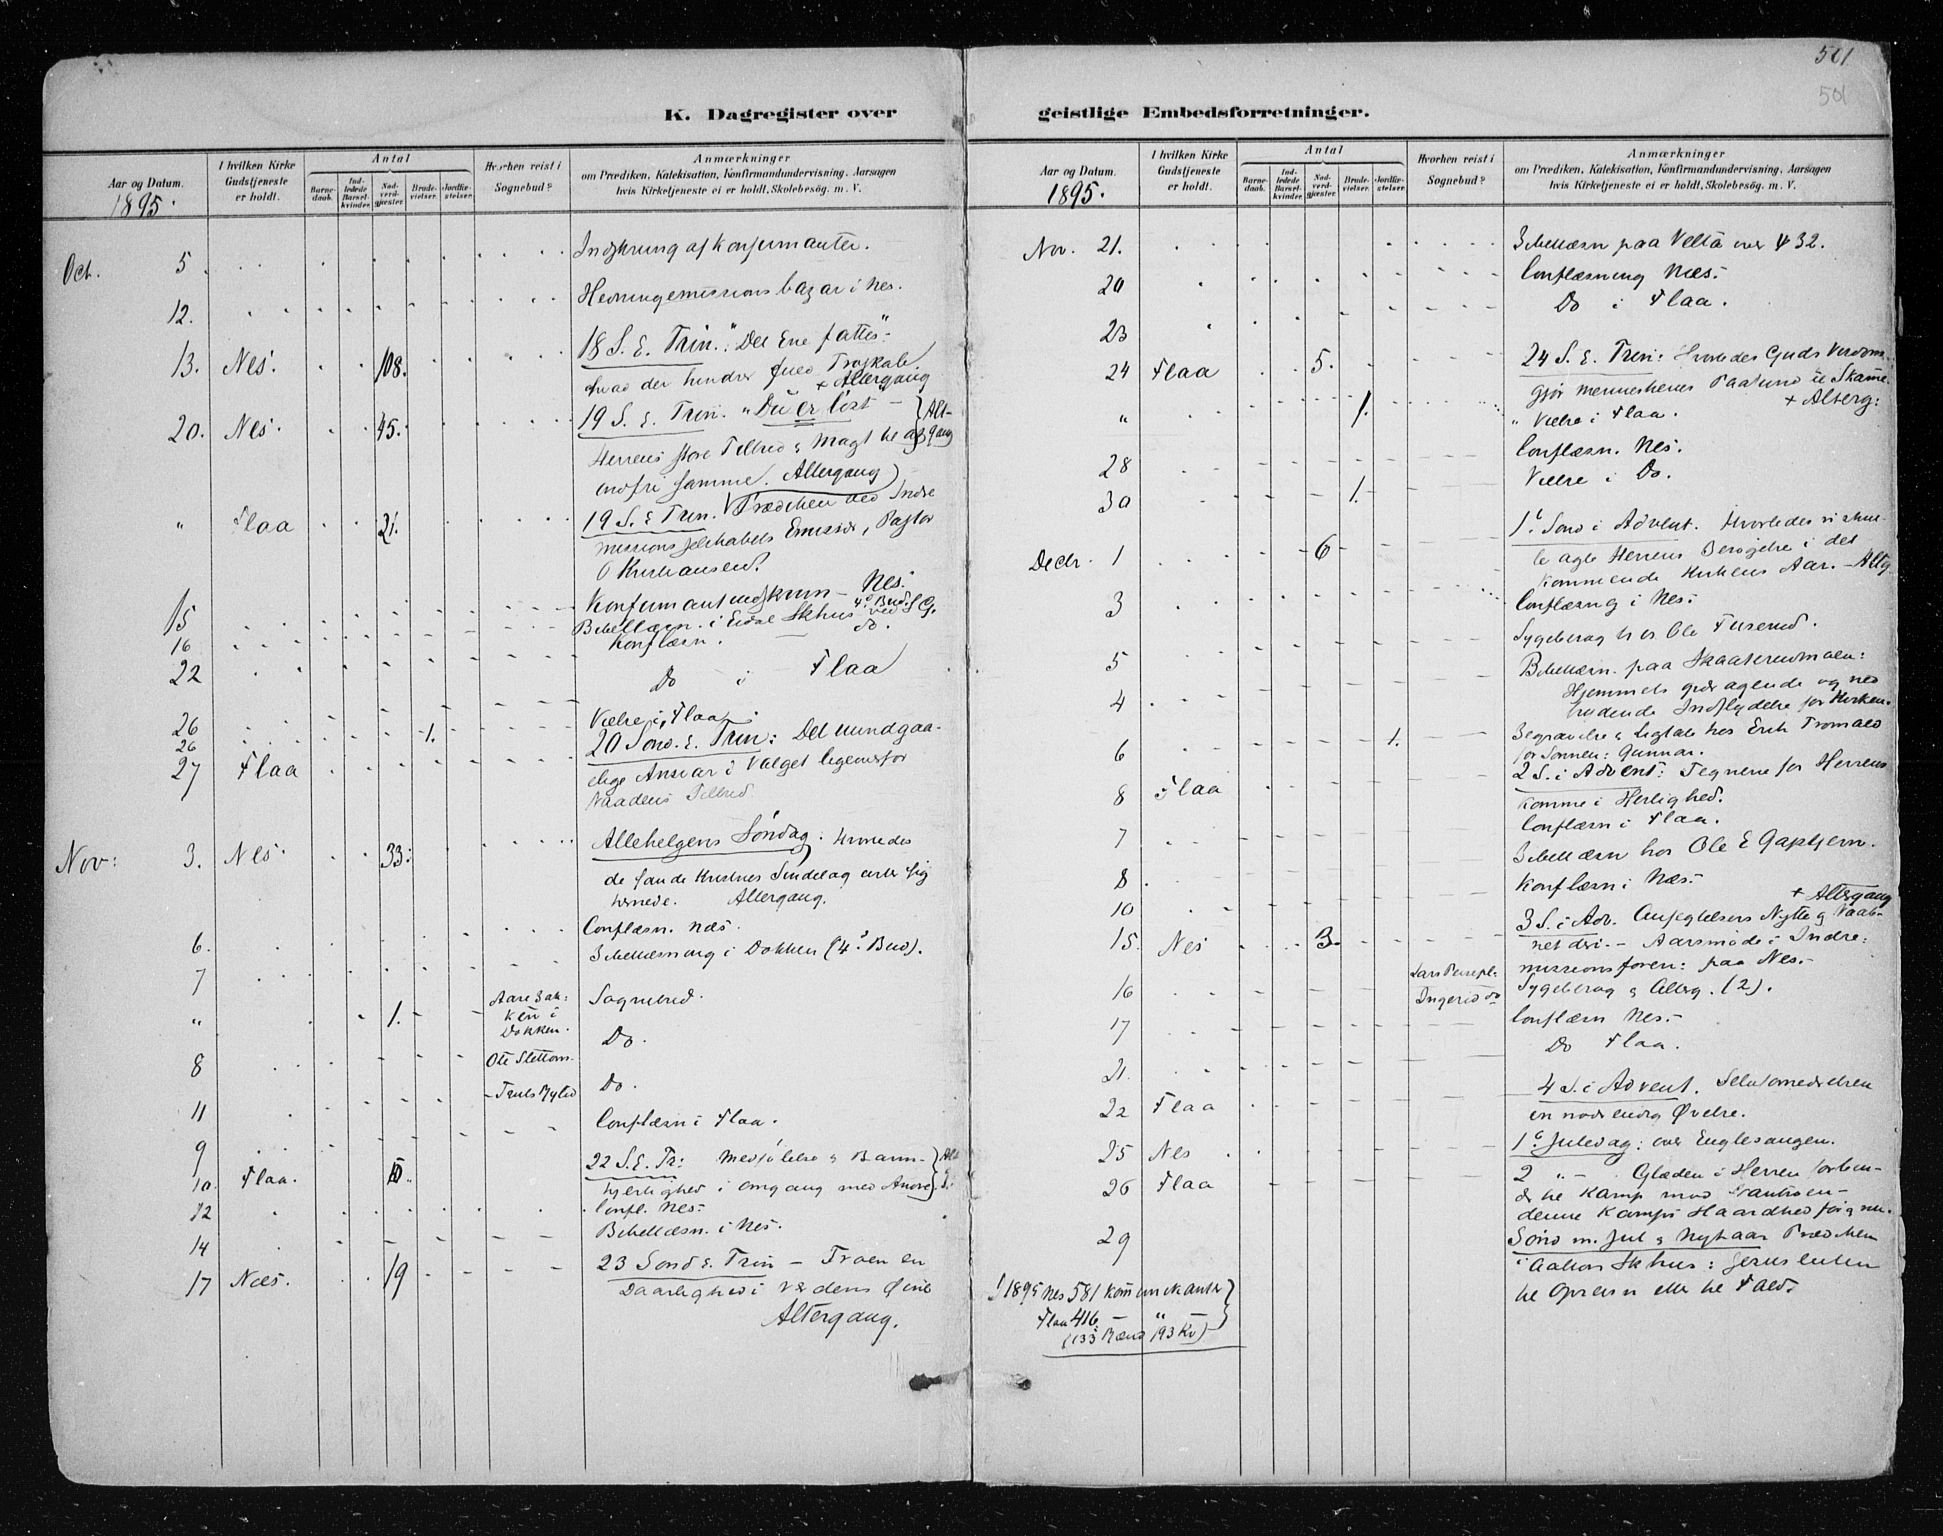 501
501
K. Dagregister over geistlige Embedsforretninger.
Aar og Datum.
1895.
I hvilken Kirke Gudstjeneste er holdt.
Antal
Barnedaab.
Indledede Barselkvinder.
Nadverdgjester.
Brudevielser.
Jordfæstelser.
Hvorhen reist i Sognebud?
Anmærkninger
om Prædiken, Katekisation, Konfirmandundervisning, Aarsagen
hvis Kirketjeneste ei er holdt, Skolebesøg. m. V.
Oct. 5 Indskrivning af Konfirmanter.
12. Hedningemissionsbazar i Nes.
13. Nes. 108. 18 S. E. Trin.: "Det Ene fattes"
hvad der hindrer
+ Altergang
20. Nes. 45. 19 S. E. Trin. "Du er løst" Alt-
gang
Herrens store Tilbud & Magt til at
indfri samme. Altergang
" Flaa 21. 19 S. E. Trin. Prædiken ved Indre
missionsselskabets Emissær, Pastor
O Kristiansen.
15 Konfirmantindskrivn - Nes.
16 Bibellæsn. i Eidal Skhus 4de Bud
Konflæsn. do.
22 Do i Flaa
26 1. Vielse i Flaa.
26
27 Flaa 20 Sond. E. Trin: Det uundgaa-
elige Ansvar i Valget ligeoverfor
Naadens Tilbud.
Nov: 3. Nes. 33. Allehelgens Søndag. Hvorledes
de sande Kristnes Sindelag arter sig
hernede. Altergang.
6. Conflæsn. Nes.
7 Bibellæsning i Dokken (4de Bud).
" 1. Aare Bak-
ken i
Dokken. Sognebud.
8 Ole Slettom. Do.
11 Truls Bylid Do.
9 Conflæsn i Flaa.
10. Flaa. 10. 22 S. E. Tr: Medfølelse & Barm-
hjertighed i Omgang med Andre
12 Confl. Nes.
14 Bibellæsn. i Nes.
17 Næs. 19 23 Sond E. Trin - Troen en
Daarlighed i Verdens Øine
Altergang.
Aar og Datum.
1895.
I hvilken Kirke Gudstjeneste er holdt.
Antal
Barnedaab.
Indledede Barselkvinder.
Nadverdgjester.
Brudevielser.
Jordfæstelser.
Hvorhen reist i Sognebud?
Anmærkninger
om Prædiken, Katekisation, Konfirmandundervisning, Aarsagen
hvis Kirketjeneste ei er holdt, Skolebesøg. m. V.
Nov. 21. Bibellæsn paa Vella over ψ 32.
20 Conflæsning Næs.
23 Do i Flaa.
24 Flaa 5. 24 S. E. Trin: Hvorledes Guds Verdom
gjør Menneskenes Paafund til Skamme.
+ Alterg:
" 1. Vielse i Flaa.
28 Conflæsn. Nes.
30 1. Vielse i Do.
Decbr. 1 6 1ste Sønd i Advent. Hvorledes vi skul-
le agte Herrens Besøgelse i det
kommende Kirkens Aar. - Altg.
3 Conflæsng i Nes.
5 Sygebesøg hos Ole Tuserud.
4 Bibellæsn. paa
Hjemmets
Indflydelse for Kirken.
6 1. Begravelse & Ligtale hos Erik Tromald
for Sønnen: Gunnar.
8 Flaa 2 S. i Advent: Tegnene for Herrens
Komme i Herlighed.
7 Conflæsn i Flaa.
8 Bibellæsn hos Ole E Gaptjern.
10 Konflæsn i Næs.
+ Altergang
15. Nes 3. 3 S. i Adv. Anfægtelsers Nytte & Vaab-
net deri. - Aarsmøde i Indre-
missionsforen: paa Nes.
16 Lars
Ingerid do Sygebesøg & Alterg. (2).
17 Conflæsn Nes.
21. Do Flaa.
22 Flaa 4 S. i Advent. Selvfornedrelsen
en nødvendig Øvelse.
25 Nes 1ste Juledag: over Englesangen.
26 Flaa 2 " - Glæden i Herren
til Kamp mod
denne Kamps Haardhed før & nu.
29 Sønd m. Jul & Nytaar Prædiken
i Aavestrud Skhus: Jesus enten
til Opreisn eller til Fald.
I 1895 Nes 581 Kommunikanter
Flaa 416 - "
(133 Mænd 193 Kv)